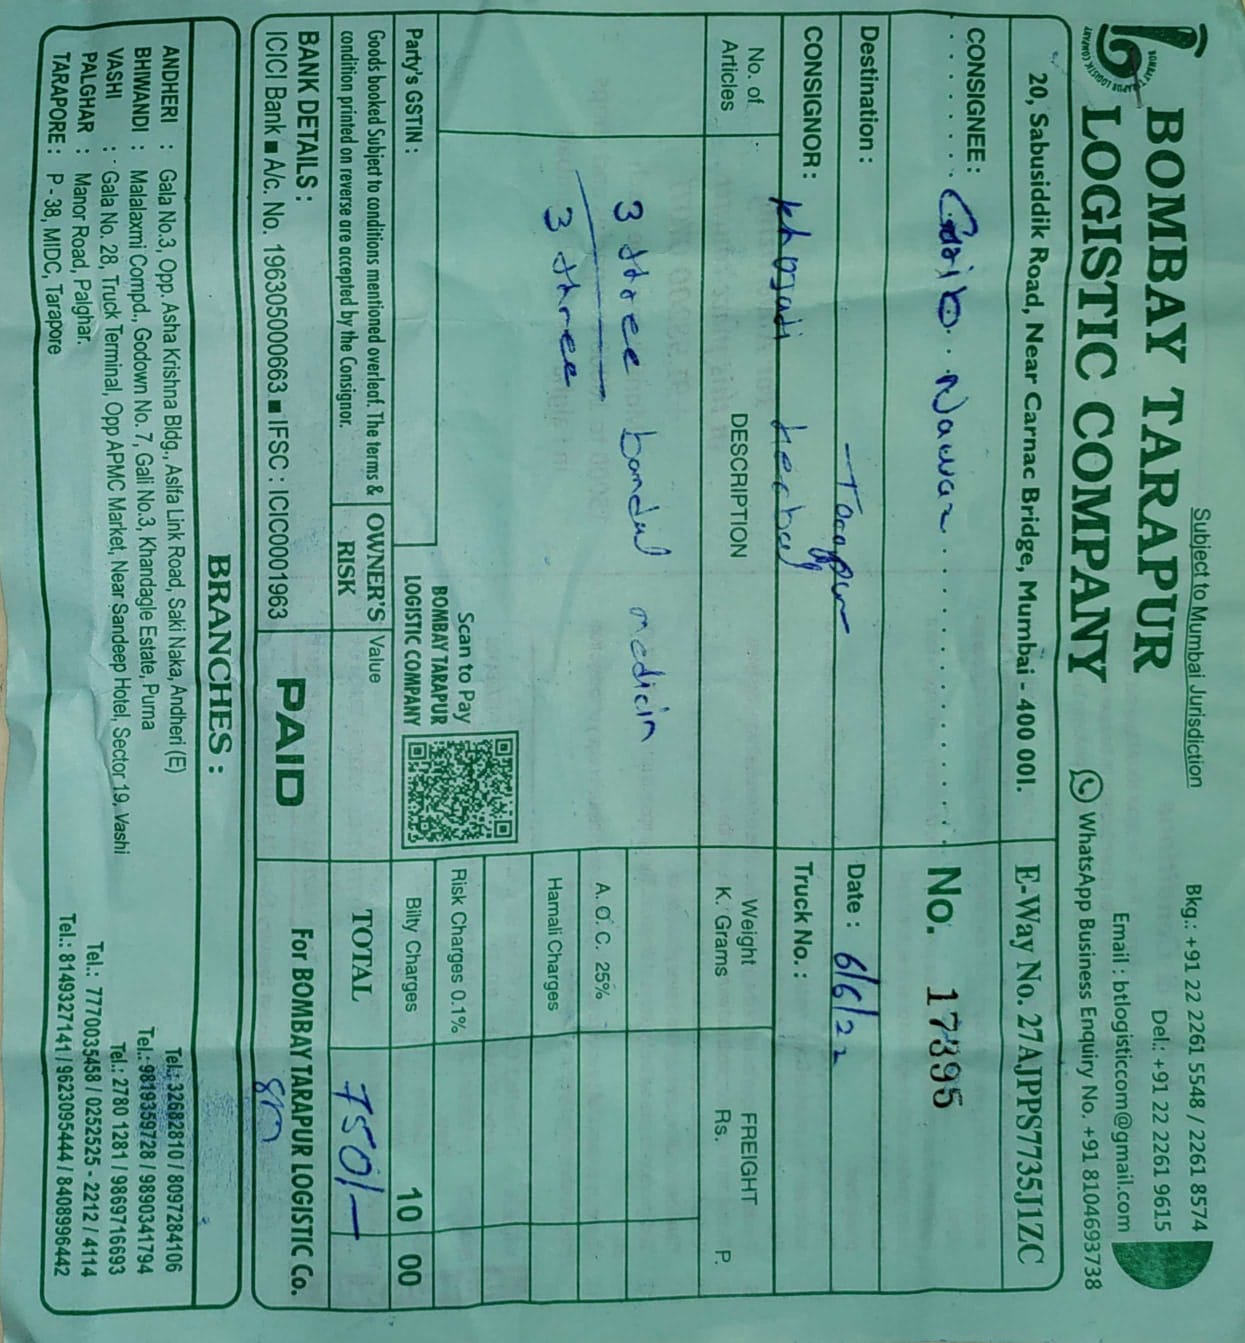 Subject to Mumbai Jurisdiction
BOMBAY TARAPUR
LOGISTIC COMPANY
Bkg.: +91 22 2261 5548 / 2261 8574
Del.: +91 22 2261 9615
Email : btlogisticcom@gmail.com
WhatsApp Business Enquiry No. +91 8104693738
20, Sabusiddik Road, Near Carnac Bridge, Mumbai - 400 001.
E-Way No. 27AJPPS7735J1ZC
CONSIGNEE:
No. 17395
Destination :
Date : 6/6/22
CONSIGNOR:
Truck No. :
No. of Articles
DESCRIPTION
Weight K. Grams
FREIGHT Rs. P.
3 three bandul medicin
3 three
A. O. C. 25%
Hamali Charges
Risk Charges 0.1%
Scan to Pay
BOMBAY TARAPUR
LOGISTIC COMPANY
Party's GSTIN :
Bilty Charges 10 00
Goods booked Subject to conditions mentioned overleof. The terms &
condition printed on reverse are accepted by the Consignor.
OWNER'S
RISK
Value
TOTAL 750/-
BANK DETAILS :
ICICI Bank ■ A/c. No. 196305000663 ■ IFSC : ICIC0001963
PAID
For BOMBAY TARAPUR LOGISTIC Co.
BRANCHES :
ANDHERI : Gala No.3, Opp. Asha Krishna Bldg., Aslfa Link Road, Saki Naka, Andheri (E) Tel.: 32682810 / 8097284106
BHIWANDI : Malalaxmi Compd., Godown No. 7, Gali No.3, Khandagle Estate, Purna Tel.: 9819359728 / 9890341794
VASHI : Gala No. 28, Truck Terminal, Opp APMC Market, Near Sandeep Hotel, Sector 19, Vashi Tel.: 2780 1281 / 9869716693
PALGHAR : Manor Road, Palghar. Tel.: 7770035458 / 0252525 - 2212 / 4114
TARAPORE : P - 38, MIDC, Tarapore Tel.: 8149327141 / 9623095444 / 8408996442